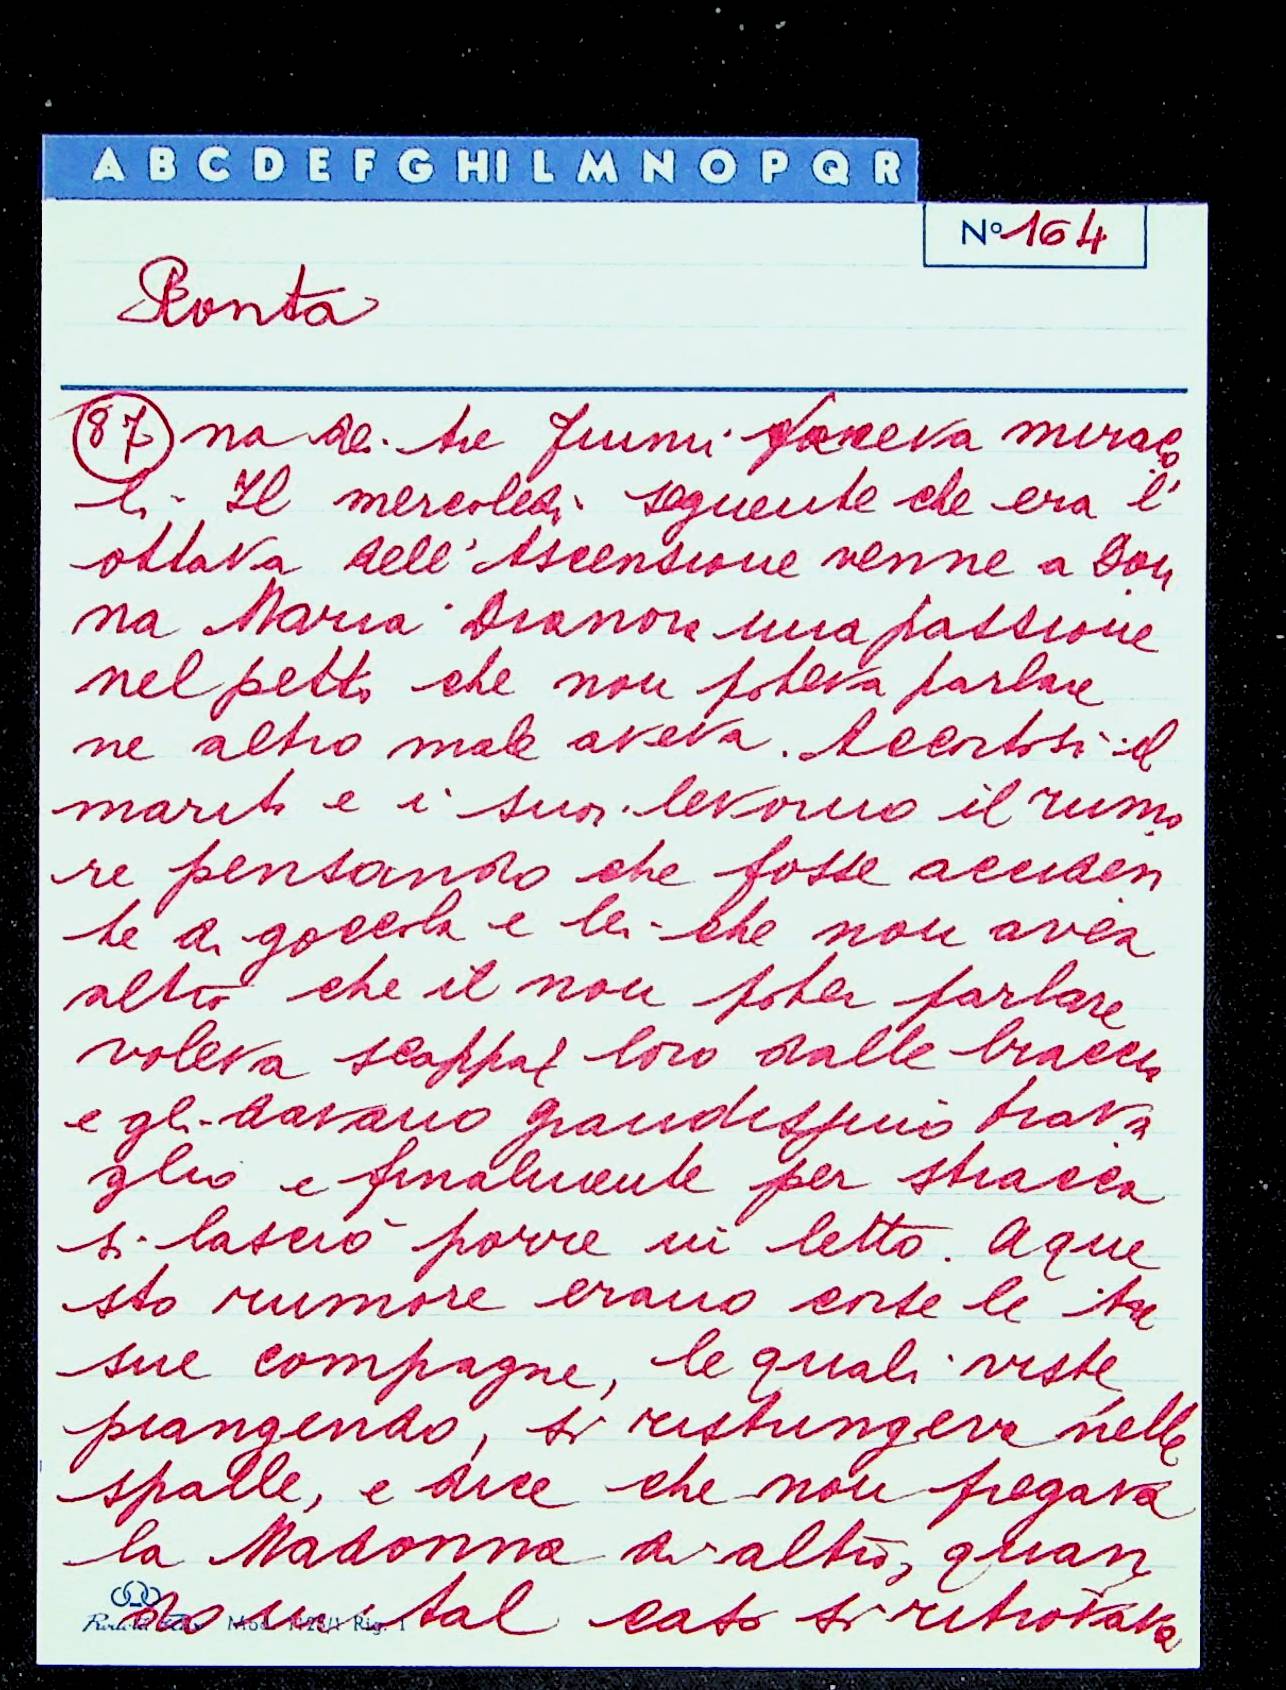 A B C D E F G H I L M N O P Q R
N° 164
Ronta
87 na dei tre fiumi faceva miraco
li. Il mercoledì seguente che era l'
ottava dell'Ascensione venne a Don
na Maria Dianora una passione
nel petto che non poteva parlare
ne altro male aveva. Accortosi il
marito e i suoi levorno il rumo
re pensando che fosse acciden
te di goccola e lei che non avea
altro che il non poter parlare
voleva scappar loro dalle braccia
e gli davano grandissimo trava
glio e finalmente per stracca
si lasciò porre in letto. A que
sto rumore erano corse le tre
sue compagne, le quali viste
piangendo, si ristringeva nelle
spalle, e dice che non pregava
la Madonna di altro, quan
do in tal caso si ritrovava
Mod. 1/25/1 Rig. 1